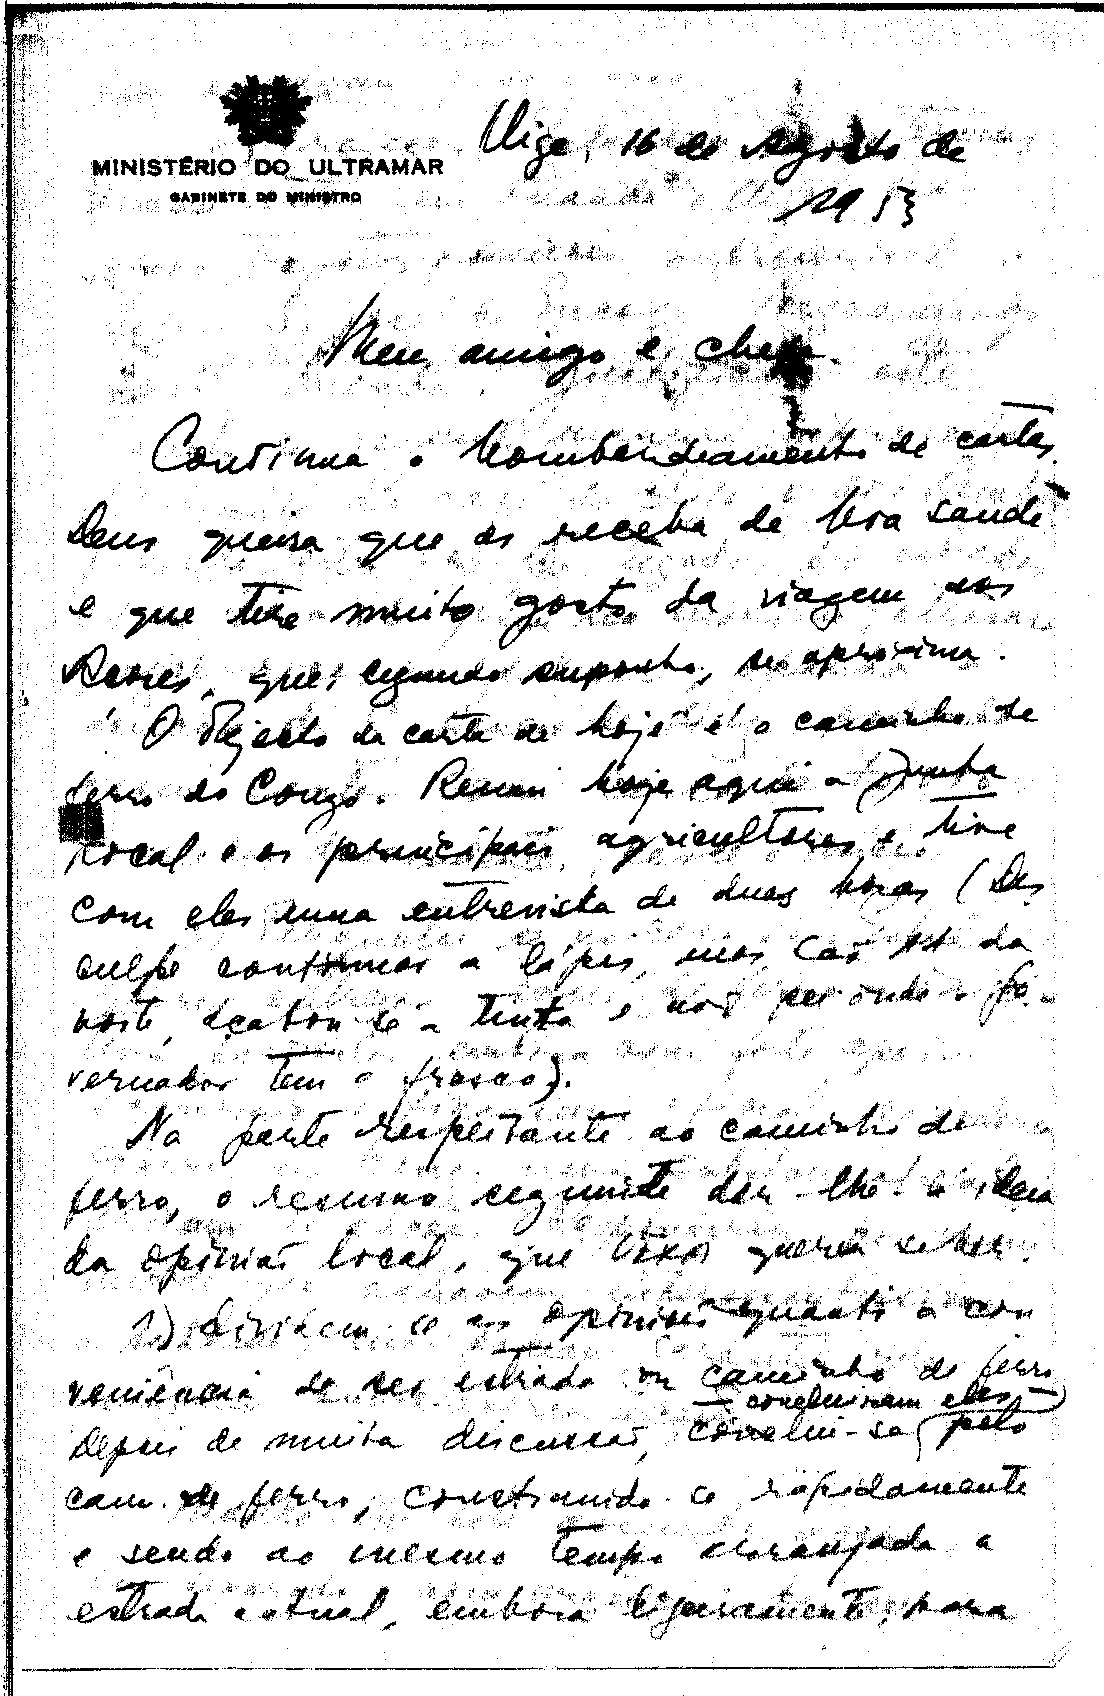 MINISTÉRIO DO ULTRAMAR
GABINETE DO MINISTRO
Uige, 16 de Agosto de
1953
Meu amigo e chefe.
Continua o bombardeamento de cartas.
Deus queira que as receba de boa saude
e que tire muito gosto da viagem aos
Açores, que, segundo suponho, se aproxima.
O objecto da carta de hoje é o caminho de
ferro do Congo. Reuni hoje aqui a Junta
Local e os principais agricultores e tive
com eles uma entrevista de duas horas (Des
culpe continuar a lápis, mas são da
noite, acabou-se a tinta e não sei onde o Go-
vernador tem o frasco).
Na parte respeitante ao caminho de
ferro, o resumo seguinte dar-lhe-á ideia
da opinião local, que quererá saber.
1) Dividem-se as opiniões quanto à con
veniência de ser estrada ou caminho de ferro
depois de muita discussão, conclui-se (concluiram eles) pelo
cam. de ferro, construindo-se rapidamente
e sendo ao mesmo tempo arranjada a
estrada actual, embora ligeiramente, para